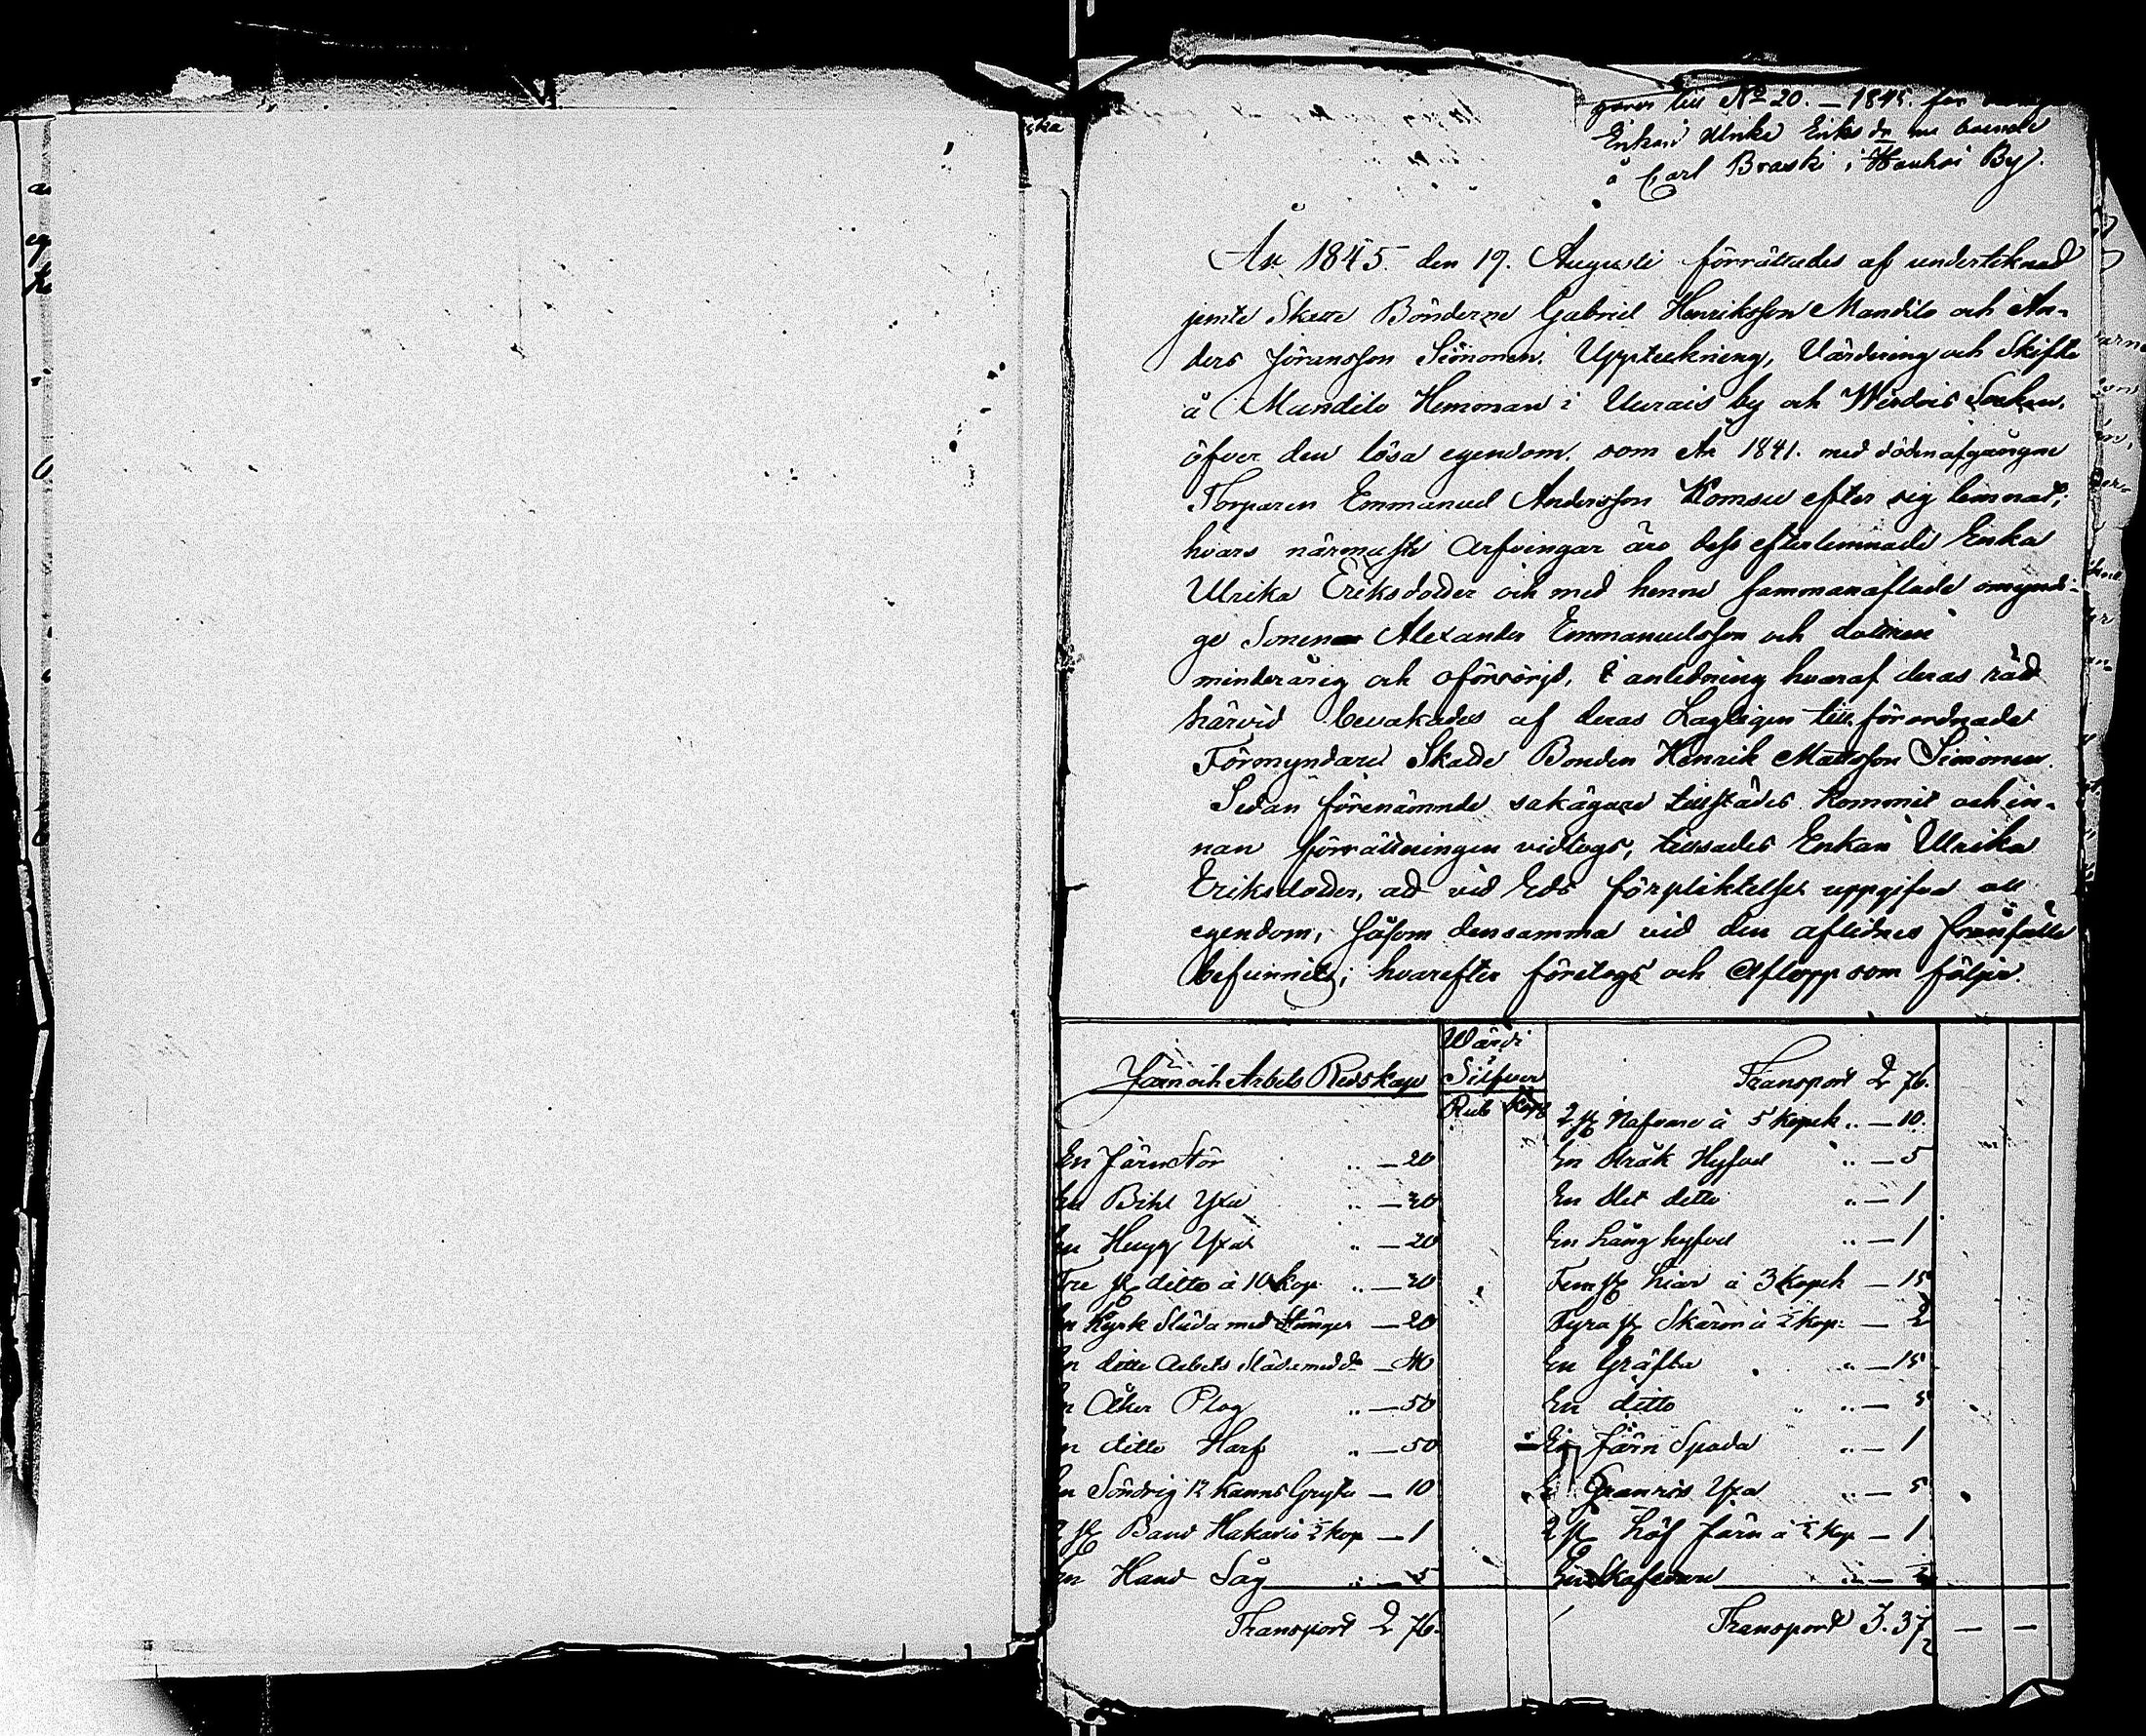 till No 20. — 1845. för
Enkan Ulrika Eriks dr nu boende
å Carl Braski i Haukoi By.
År 1845 den 19. Augusti förrättades af underteknad
jemte Skatte Bönderne Gabriel Henriksson Mandilo och An-
ders Jöransson Simonen, Uppteckning, Värdering och Skifte
å Mandilo Hemman i Uurais by och Wirdois Socken,
öfver den lösa egendom, som År 1841. med döden afgångne
Torparen Emmanuel Andersson Komsu efter sig lemnat;
hvars närmaste arfvingar äro dess efterlemnade Enka
Ulrika Eriksdotter och med henne sammanaflade omyndi-
ge Sonen Alexander Emmanuelsson och dottren
minderårig och oförsörjd, i anledning hvaraf deras rätt
härvid bevakades af deras Lagligen till förordnade
Förmyndare Skatte Bonden Henrik Mattsson Simonen.
Sedan förenämnde sakägare tillstädes kommit och in-
nan förrättningen vidtogs, tillsades Enkan Ulrika
Eriksdotter, att vid Eds förpliktelse uppgifva all
egendom, såsom densamma vid den aflidnes frånfälle
befunnits; hvarefter företogs och aflopp som följer.
Järn och Arbets Redskap
Wärde
Silfver
Rub Kop
En Järn Stör „ — 20
En Bihl Yxa „ — 20
En Hugg Yxa „ — 20
Tre st ditto à 10 kop „ — 30
En Kyrk Släda med Stänger — 20
En ditto Arbets Släde med do — 40
En Åker Plog „ — 50
En ditto Harf „ — 50
En Söndrig 12 kanns Gryta — 10
2 st Band Hakar à ½ kop — 1
En Hand Såg „ — 5
Transport 2 76.
Transport 2 76.
2 st Nafvare à 5 kopek „ — 10.
En Stråk Hyfvel „ — 5
En Slet ditto „ — 1
En Lång hyfvel „ — 1
Fem st Liar à 3 kopek — 15
Fyra st Skäror à ½ kop: — 2
En Gräfta „ — 15
En ditto „ — 5
En Järn Spada „ — 1
En Granris Yxa „ — 5
2 st Löf Järn à ½ Kop — 1
Transport 3. 37½ — —